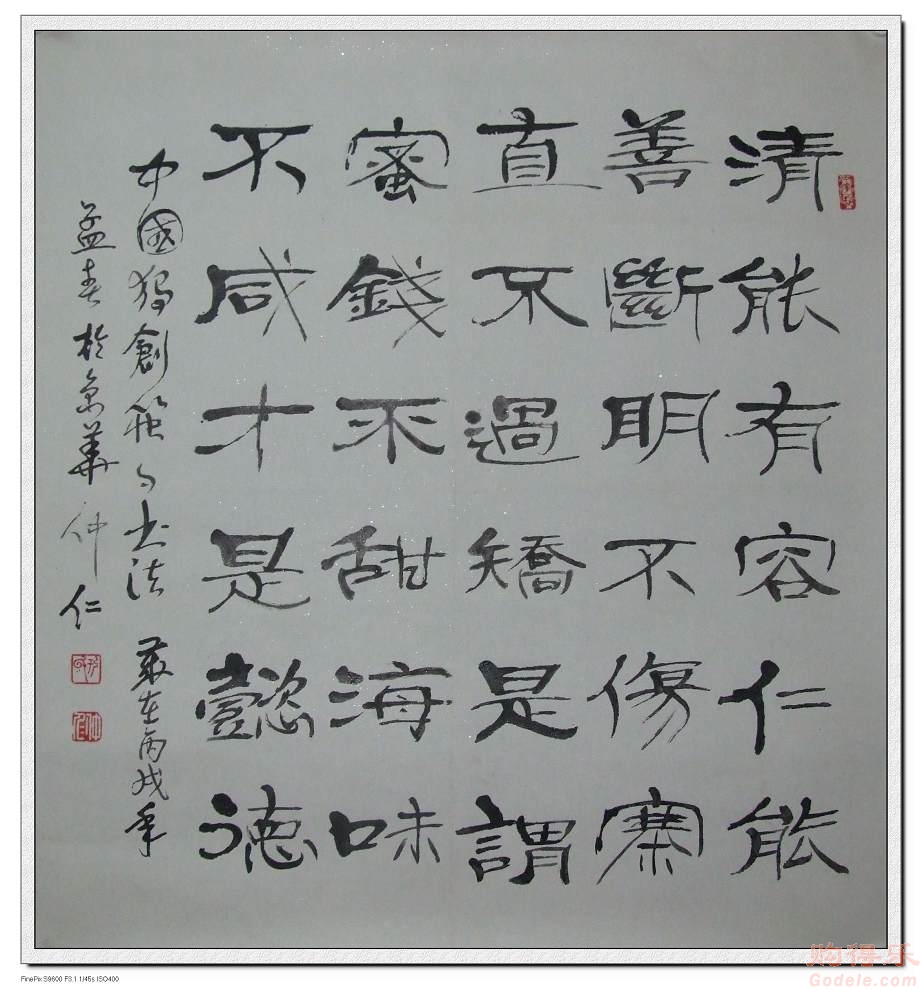 清能有容仁能
善斷明不傷寨
直不過矯是謂
蜜錢不甜海味
不咸才是懿德
中國獨創筷子书法 歲在丙戌年
孟春於京華 仲仁
购得乐
Godele.com
FinePix S9600 F3.1 1/45s ISO400